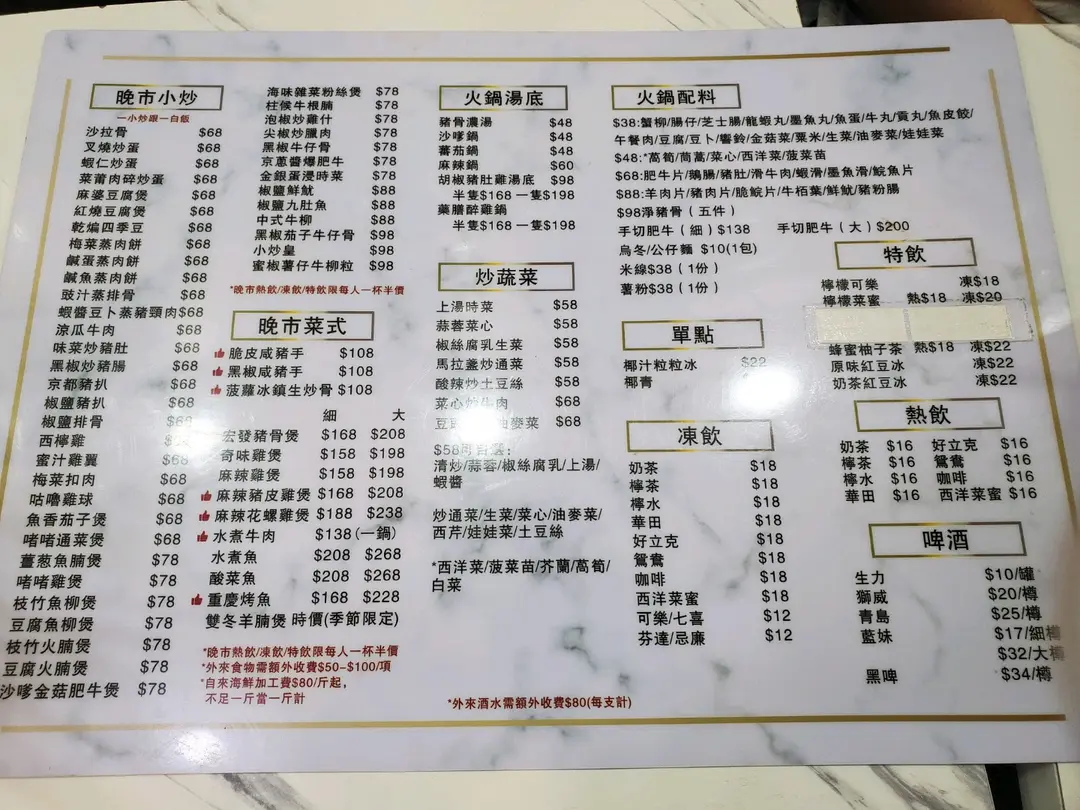 晚市小炒
一小炒跟一白飯
沙拉骨 $68
叉燒炒蛋 $68
蝦仁炒蛋 $68
菜莆肉碎炒蛋 $68
麻婆豆腐煲 $68
紅燒豆腐煲 $68
乾煸四季豆 $68
梅菜蒸肉餅 $68
鹹蛋蒸肉餅 $68
鹹魚蒸肉餅 $68
豉汁蒸排骨 $68
蝦醬豆卜蒸豬頸肉$68
涼瓜牛肉 $68
味菜炒豬肚 $68
黑椒炒豬腸 $68
京都豬扒 $68
椒鹽豬扒 $68
椒鹽排骨 $68
西檸雞
蜜汁雞翼 $68
梅菜扣肉 $68
咕嚕雞球 $68
魚香茄子煲 $68
啫啫通菜煲 $68
薑葱魚腩煲 $78
啫啫雞煲 $78
枝竹魚柳煲 $78
豆腐魚柳煲 $78
枝竹火腩煲 $78
豆腐火腩煲 $78
沙嗲金菇肥牛煲 $78
海味雜菜粉絲煲 $78
柱候牛根腩 $78
泡椒炒雞什 $78
尖椒炒臘肉 $78
黑椒牛仔骨 $78
京蔥醬爆肥牛 $78
金銀蛋浸時菜 $78
椒鹽鮮魷 $88
椒鹽九肚魚 $88
中式牛柳 $88
黑椒茄子牛仔骨 $98
小炒皇 $98
蜜椒薯仔牛柳粒 $98
*晚市熱飲/凍飲/特飲限每人一杯半價
晚市菜式
脆皮咸豬手 $108
黑椒咸豬手 $108
菠蘿冰鎮生炒骨 $108
細 大
宏發豬骨煲 $168 $208
奇味雞煲 $158 $198
麻辣雞煲 $158 $198
麻辣豬皮雞煲 $168 $208
麻辣花螺雞煲 $188 $238
水煮牛肉 $138(一鍋)
水煮魚 $208 $268
酸菜魚 $208 $268
重慶烤魚 $168 $228
雙冬羊腩煲 時價(季節限定)
*晚市熱飲/凍飲/特飲限每人一杯半價
*外來食物需額外收費$50-$100/項
*自來海鮮加工費$80/斤起，
不足一斤當一斤計
火鍋湯底
豬骨濃湯 $48
沙嗲鍋 $48
蕃茄鍋 $48
麻辣鍋 $60
胡椒豬肚雞湯底 $98
半隻$168 一隻$198
藥膳醉雞鍋
半隻$168 一隻$198
炒蔬菜
上湯時菜 $58
蒜蓉菜心 $58
椒絲腐乳生菜 $58
馬拉盞炒通菜 $58
酸辣炒土豆絲 $58
菜心炒牛肉 $68
油麥菜 $68
$58可自選:
清炒/蒜蓉/椒絲腐乳/上湯/
蝦醬
炒通菜/生菜/菜心/油麥菜/
西芹/娃娃菜/土豆絲
*西洋菜/菠菜苗/芥蘭/萵筍/
白菜
*外來酒水需額外收費$80(每支計)
火鍋配料
$38:蟹柳/腸仔/芝士腸/龍蝦丸/墨魚丸/魚蛋/牛丸/貢丸/魚皮餃/
午餐肉/豆腐/豆卜/響鈴/金菇菜/粟米/生菜/油麥菜/娃娃菜
$48:*萵筍/茼蒿/菜心/西洋菜/菠菜苗
$68:肥牛片/鵝腸/豬肚/滑牛肉/蝦滑/墨魚滑/鯇魚片
$88:羊肉片/豬肉片/脆鯇片/牛栢葉/鮮魷/豬粉腸
$98淨豬骨（五件）
手切肥牛（細）$138 手切肥牛（大）$200
烏冬/公仔麵 $10(1包)
米線$38（1份）
薯粉$38（1份）
單點
椰汁粒粒冰 $22
椰青
凍飲
奶茶 $18
檸茶 $18
檸水 $18
華田 $18
好立克 $18
鴛鴦 $18
咖啡 $18
西洋菜蜜 $18
可樂/七喜 $12
芬達/忌廉 $12
特飲
檸檬可樂 凍$18
檸檬菜蜜 熱$18 凍$20
蜂蜜柚子茶 熱$18 凍$22
原味紅豆冰 凍$22
奶茶紅豆冰 凍$22
熱飲
奶茶 $16 好立克 $16
檸茶 $16 鴛鴦 $16
檸水 $16 咖啡 $16
華田 $16 西洋菜蜜 $16
啤酒
生力 $10/罐
獅威 $20/樽
青島 $25/樽
藍妹 $17/細樽
$32/大樽
黑啤 $34/樽